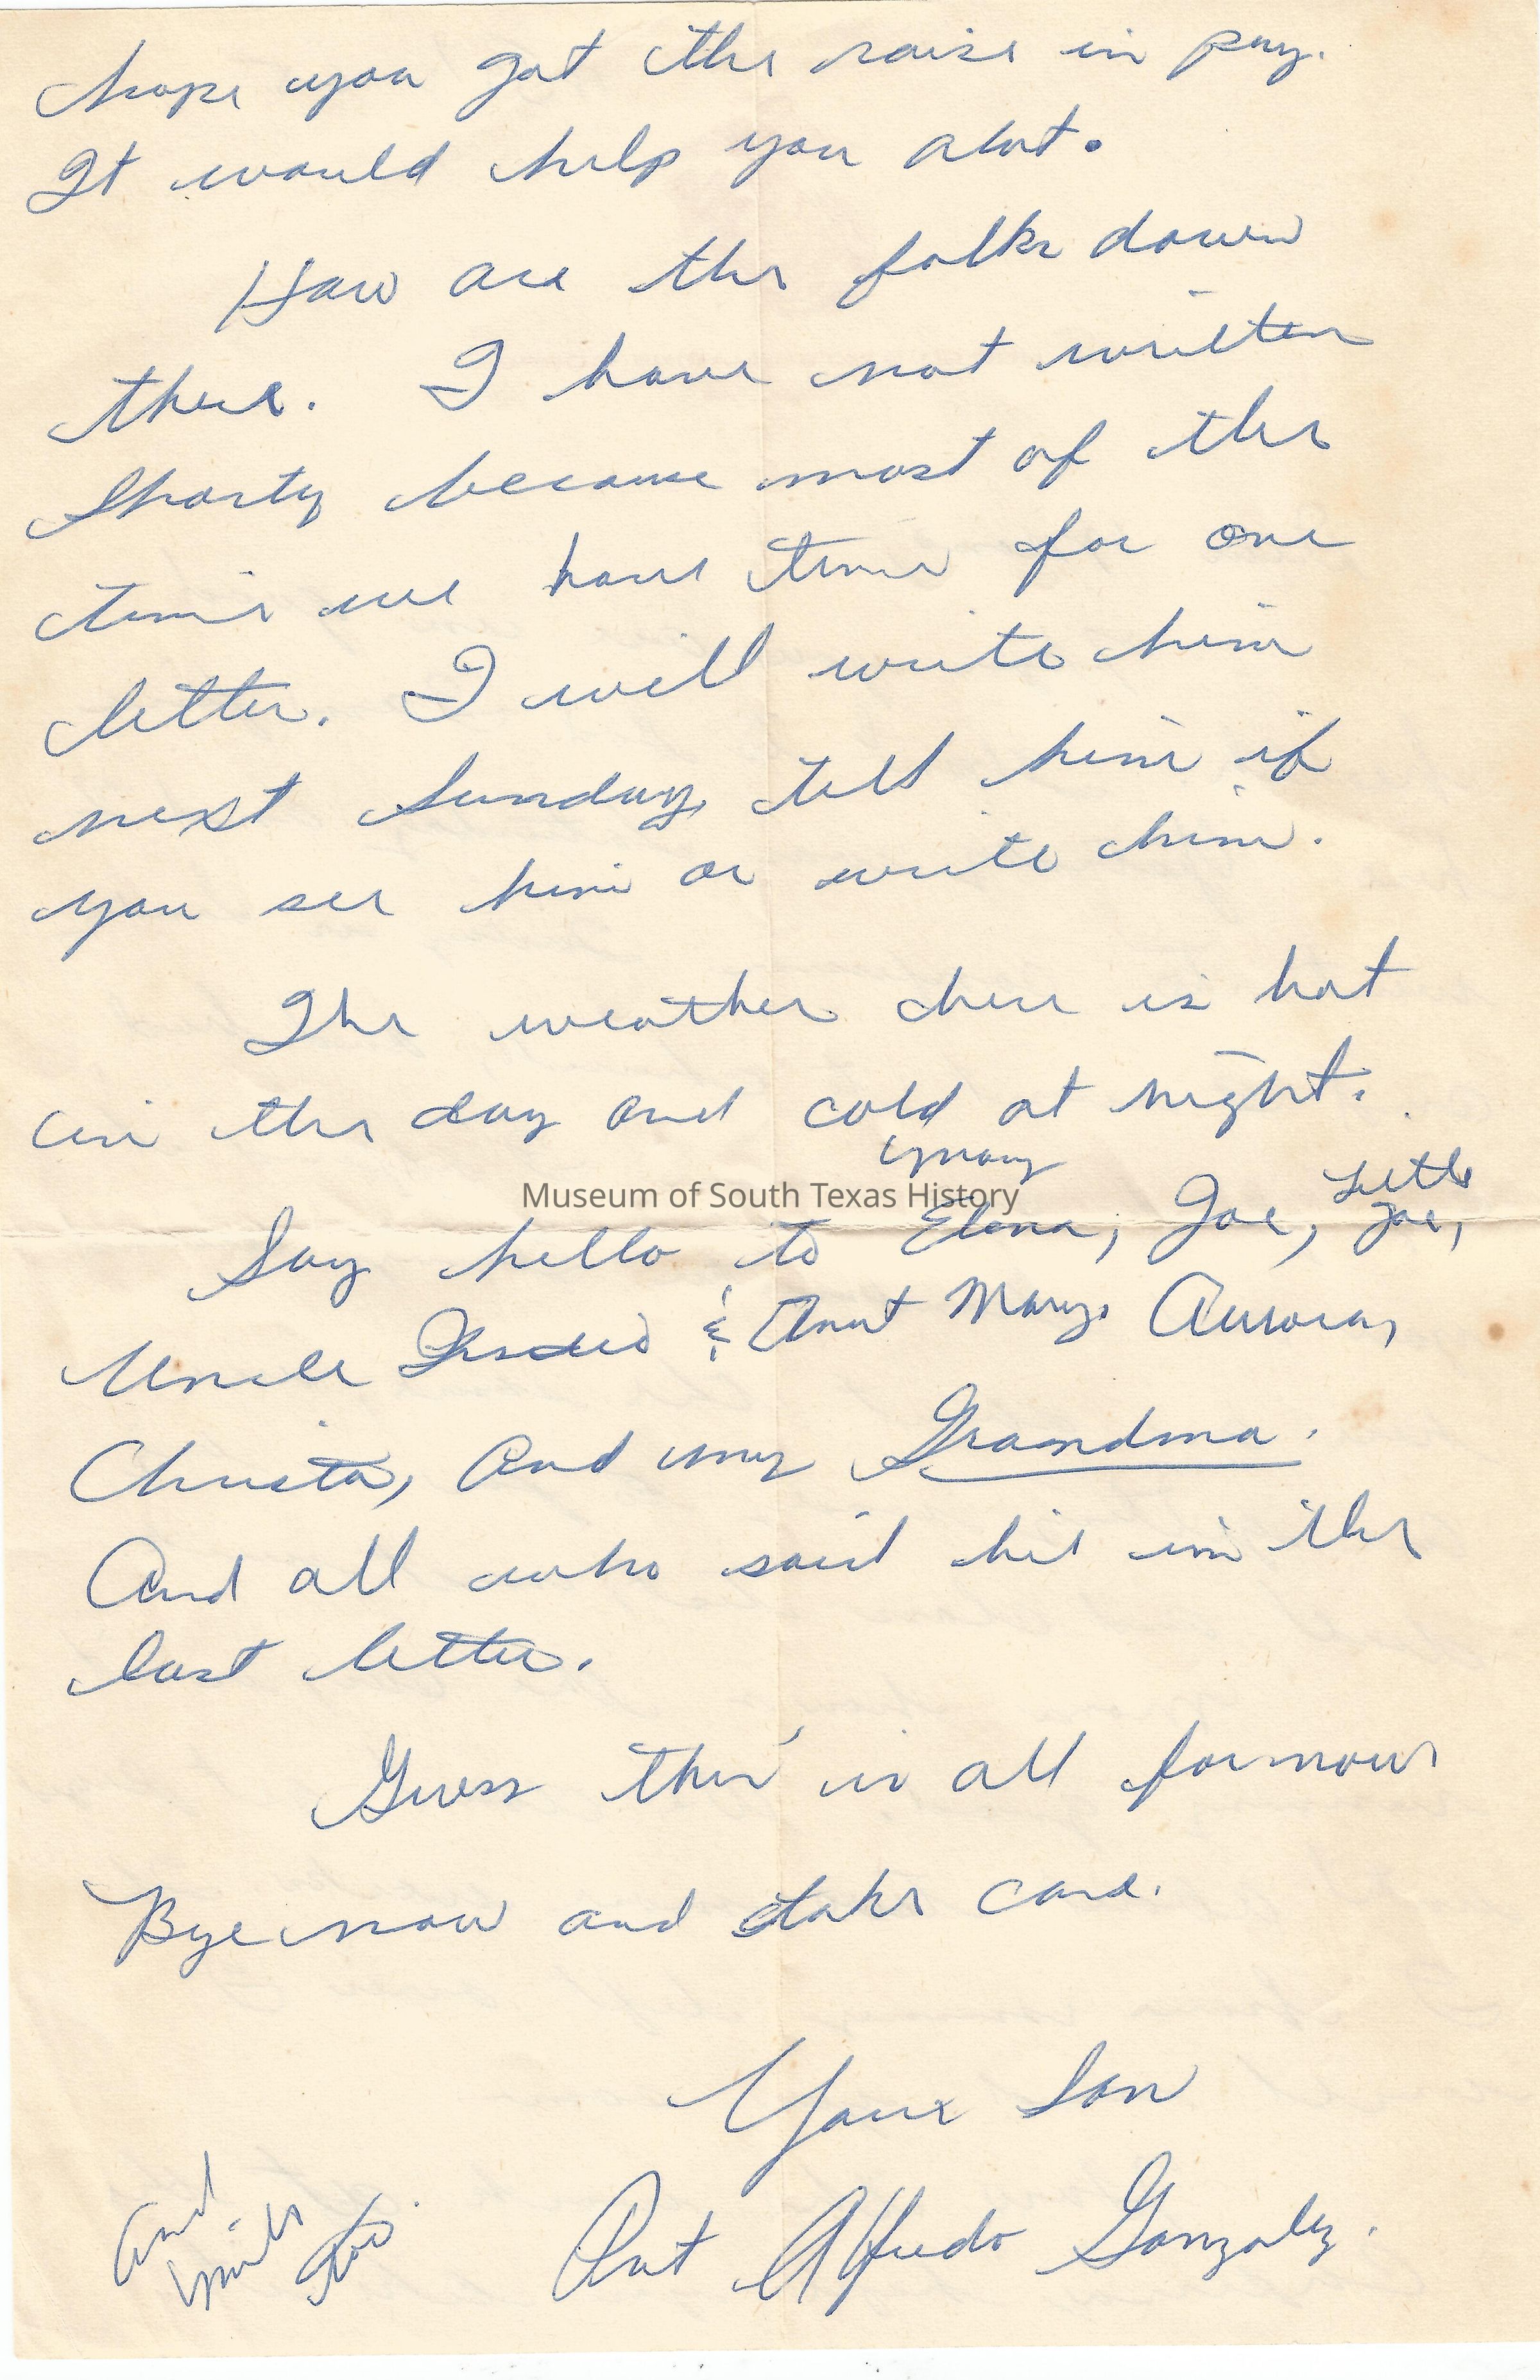 hope you got the raise in pay.
It would help you alot.
How are the folks down
there. I have not written
Shorty because most of the
time we have time for one
letter. I will write him
next Sunday, tell him if
you see him or write him.
The weather here is hot
in the day and cold at night.
Museum of South Texas History
Say hello to Elena, Joe, Little Joe,
Uncle & Aunt Mary. Aurora,
Christa, and my Grandma.
And all who said hi in the
last letter.
Guess this is all for now
Bye now and take care.
Your Son
Pvt Alfredo Gonzalez.
and